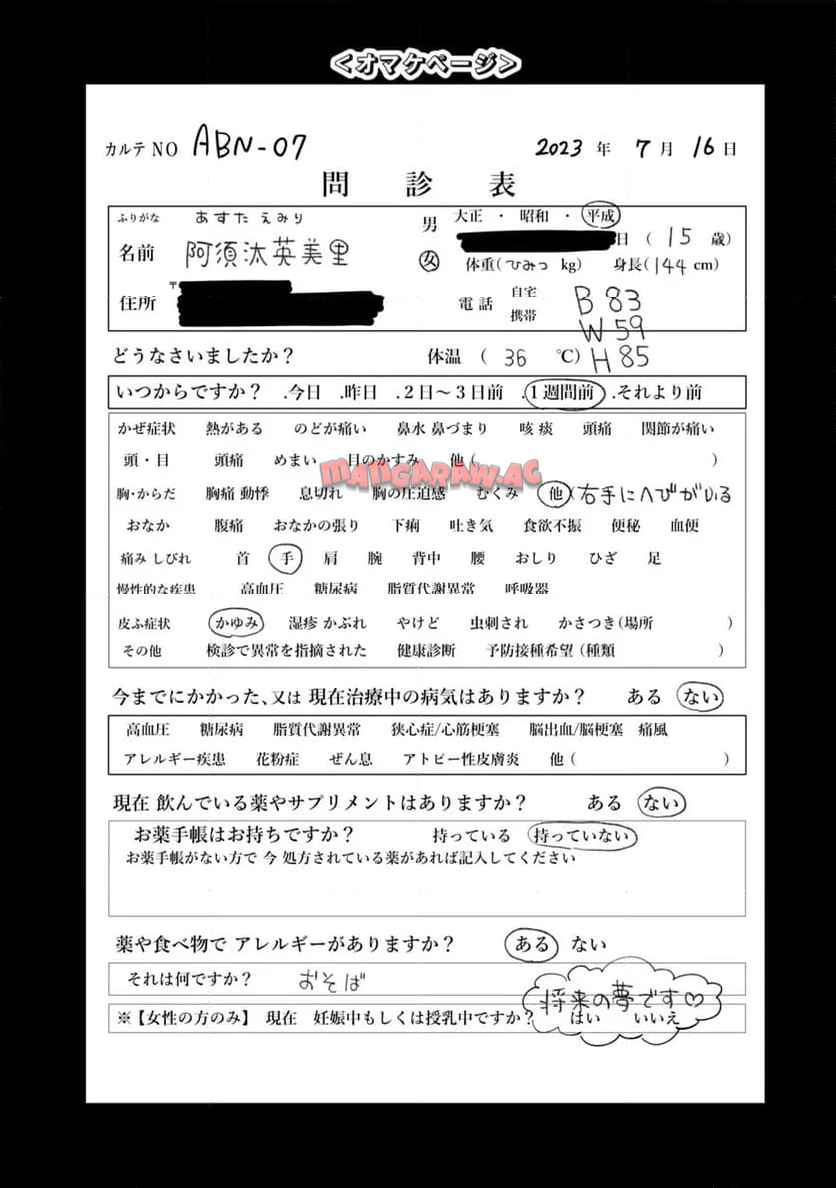 ＜オマケページ＞
カルテ NO ABN-07 2023 年 7 月 16 日
問診表
ふりがな あすた えみり 男 大正 ・ 昭和 ・ 平成
名前 阿須汰英美里 女 日 ( 15 歳)
体重(ひみつ kg) 身長(144 cm)
〒
住所 電話 自宅 携帯 B 83
W 59
どうなさいましたか？ 体温 ( 36 ℃) H 85
いつからですか？ .今日 .昨日 .2日～3日前 .1週間前 .それより前
かぜ症状 熱がある のどが痛い 鼻水 鼻づまり 咳 痰 頭痛 関節が痛い
頭・目 頭痛 めまい 目のかすみ 他 ( )
MANGARAW.AC
胸・からだ 胸痛 動悸 息切れ 胸の圧迫感 むくみ 他 (右手にへびがいる
おなか 腹痛 おなかの張り 下痢 吐き気 食欲不振 便秘 血便
痛み しびれ 首 手 肩 腕 背中 腰 おしり ひざ 足
慢性的な疾患 高血圧 糖尿病 脂質代謝異常 呼吸器
皮ふ症状 かゆみ 湿疹 かぶれ やけど 虫刺され かさつき(場所 )
その他 検診で異常を指摘された 健康診断 予防接種希望 (種類 )
今までにかかった、又は 現在治療中の病気はありますか？ ある ない
高血圧 糖尿病 脂質代謝異常 狭心症/心筋梗塞 脳出血/脳梗塞 痛風
アレルギー疾患 花粉症 ぜん息 アトピー性皮膚炎 他 ( )
現在 飲んでいる薬やサプリメントはありますか？ ある ない
お薬手帳はお持ちですか？ 持っている 持っていない
お薬手帳がない方で 今 処方されている薬があれば記入してください
薬や食べ物で アレルギーがありますか？ ある ない
それは何ですか？ おそば
将来の夢です♡
※【女性の方のみ】 現在 妊娠中もしくは授乳中ですか？ はい いいえ